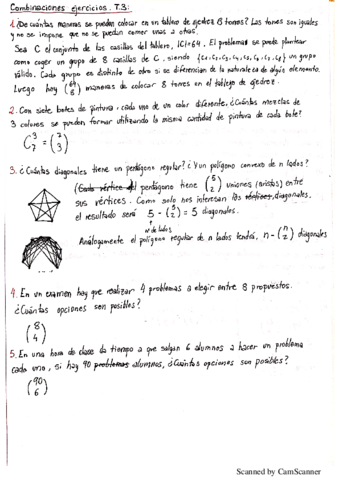 Combinaciones ejercicios. T.3:
1. ¿De cuántas maneras se pueden colocar en un tablero de ajedrez 8 torres? Las torres son iguales
y no se impone que no se puedan comer unas a otras.
Sea C el conjunto de las casillas del tablero, |C|=64. El problema se puede plantear
como coger un grupo de 8 casillas de C, siendo {C1, C2, C3, C4, C5, C6, C7, C8} un grupo
válido. Cada grupo es distinto de otro si se diferencian de la naturaleza de algún elemento.
Luego hay (64 8) maneras de colocar 8 torres en el tablero de ajedrez.
2. Con siete botes de pintura, cada uno de un color diferente, ¿Cuántas mezclas de
3 colores se pueden formar utilizando la misma cantidad de pintura de cada bote?
C 3 7 = (7 3)
3. ¿Cuántas diagonales tiene un pentágono regular? ¿Y un polígono convexo de n lados?
(Cada vértice del pentágono tiene (5 2) uniones (aristas) entre
sus vértices. Como solo nos interesan las vértices, diagonales,
el resultado será 5 - (5 2) = 5 diagonales.
nº de lados
Análogamente el polígono regular de n lados tendrá, n - (n 2) diagonales
4. En un examen hay que realizar 4 problemas a elegir entre 8 propuestos.
¿Cuántas opciones son posibles?
(8 4)
5. En una hora de clase da tiempo a que salgan 6 alumnos a hacer un problema
cada uno, si hay 90 problemas alumnos, ¿Cuántas opciones son posibles?
(90 6)
Scanned by CamScanner